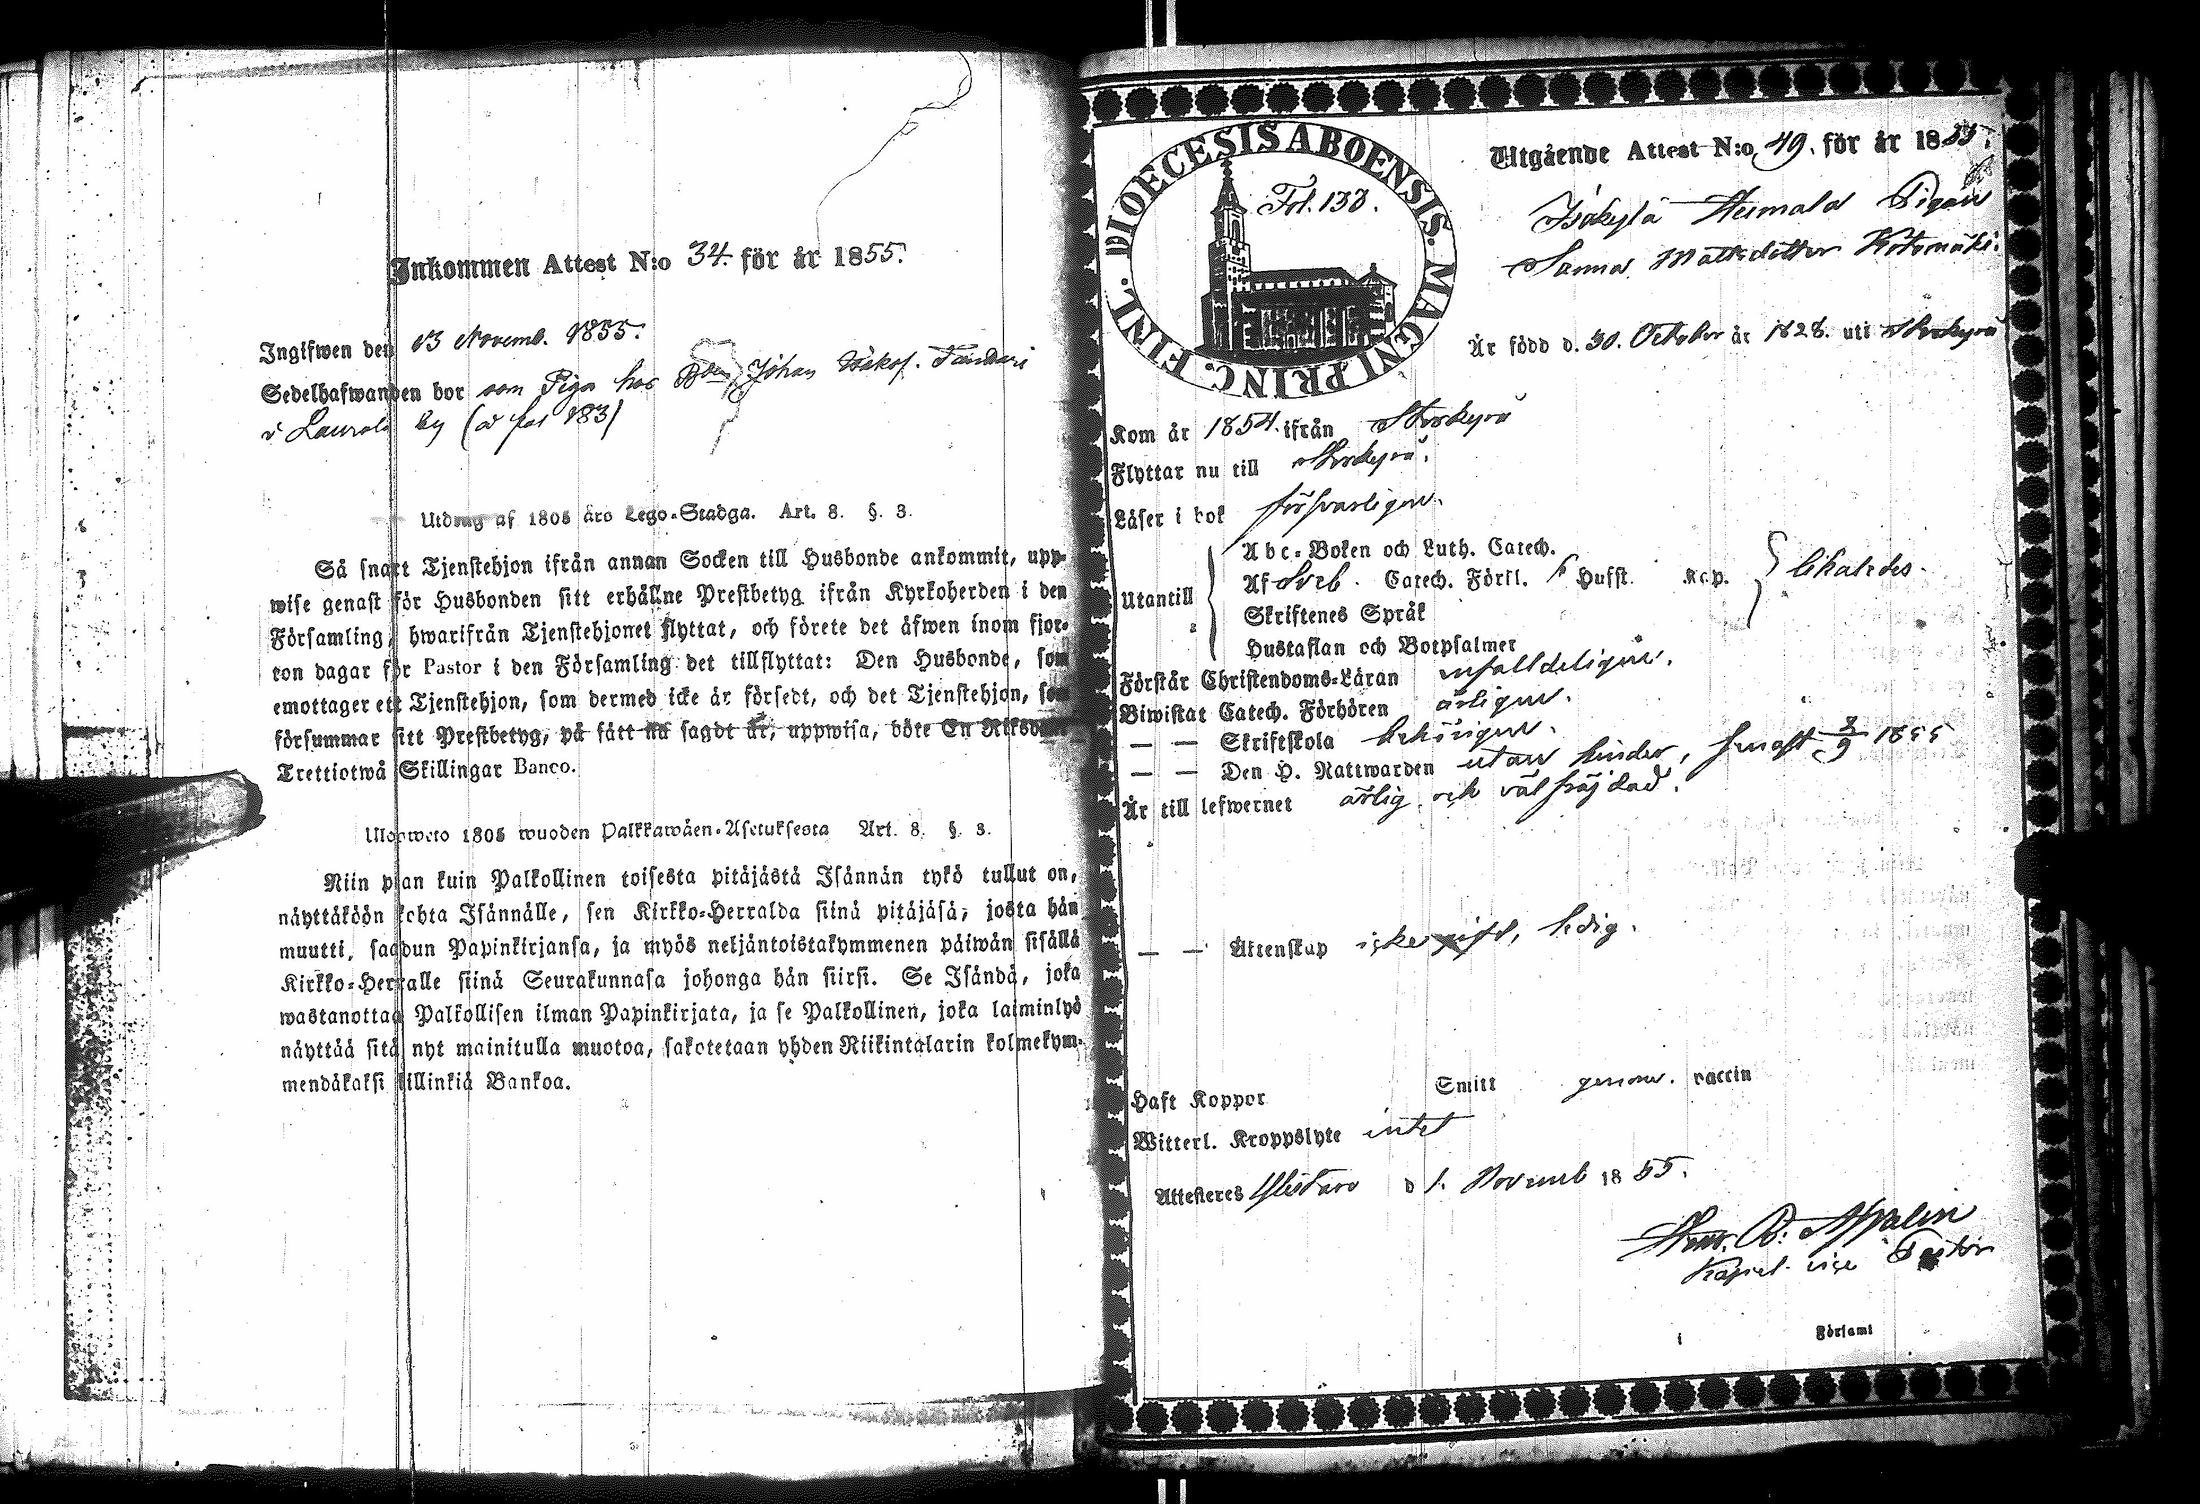 Inkommen Attest N:o 34. för år 1855.
Ingifwen den 13 Novemb. 1855.
Sedelhafwanden bor som Piga hos Bden Johan Isakss. Tandari
i Laurola by (a fol 183)
Utdrag af 1805 års Lego-Stadga. Art. 8. §. 3.
Så snart Tjenstehjon ifrån annan Socken till Husbonde ankommit, upp-
wise genast för Husbonden sitt erhållne Prestbetyg ifrån Kyrkoherden i den
Församling, hwarifrån Tjenstehjonet flyttat, och förete det äfwen inom fjor-
ton dagar för Pastor i den Församling det tillflyttat: Den Husbonde, som
emottager ett Tjenstehjon, som dermed icke är försedt, och det Tjenstehjon, som
försummar sitt Prestbetyg, på sätt nu sagdt är, uppwisa, böte En Riksdaler
Trettiotwå Skillingar Banco.
Ulosweto 1805 wuoden Palkkawäen-Asetuksesta Art. 8. §. 3.
Niin pian kuin Palkollinen toisesta pitäjästä Isännän tykö tullut on,
näyttäköön kohta Isännälle, sen Kirkko-Herralda siinä pitäjäsä, josta hän
muutti, saadun Papinkirjansa, ja myös neljäntoistakymmenen päiwän sisällä
Kirkko-Herralle siinä Seurakunnasa johonga hän siirsi. Se Isändä, joka
wastanottaa Palkollisen ilman Papinkirjata, ja se Palkollinen, joka laiminlyö
näyttää sitä nyt mainitulla muotoa, sakotetaan yhden Riikintalarin kolmekym-
mendäkaksi killinkiä Bankoa.
DIOECESIS ABOENSIS. MAGNI PRINC. FINL.
Fol. 133.
Utgående Attest N:o 49. för år 1855.
Isokylä Heimala Pigan
Sanna Mattsdotter Kotamäki.
Är född d. 30. October år 1828. uti Storkyro
Kom år 1854. ifrån Storkyro
Flyttar nu till Storkyro.
Läser i bok försvarligen.
Utantill
Abc-Boken och Luth. Catech.
Af Sveb. Catech. Förkl. 6 Hufst. Kap.
Skriftenes Språk
Hustaflan och Botpsalmer
likaledes.
Förstår Christendoms-Läran enfalldeligen.
Biwistat Catech. Förhören årligen.
— — Skriftskola behörigen.
— — Den H. Nattwarden utan hinder, senast 2/9 1855
Är till lefwernet ärlig och välfräjdad.
— — Äktenskap icke gift, ledig.
Haft Koppor Smitt genom. vaccin
Witterl. Kroppslyte intet
Attesteras Ylistaro d 1. Novemb 1855.
Kapel. vice Pastor
Församl